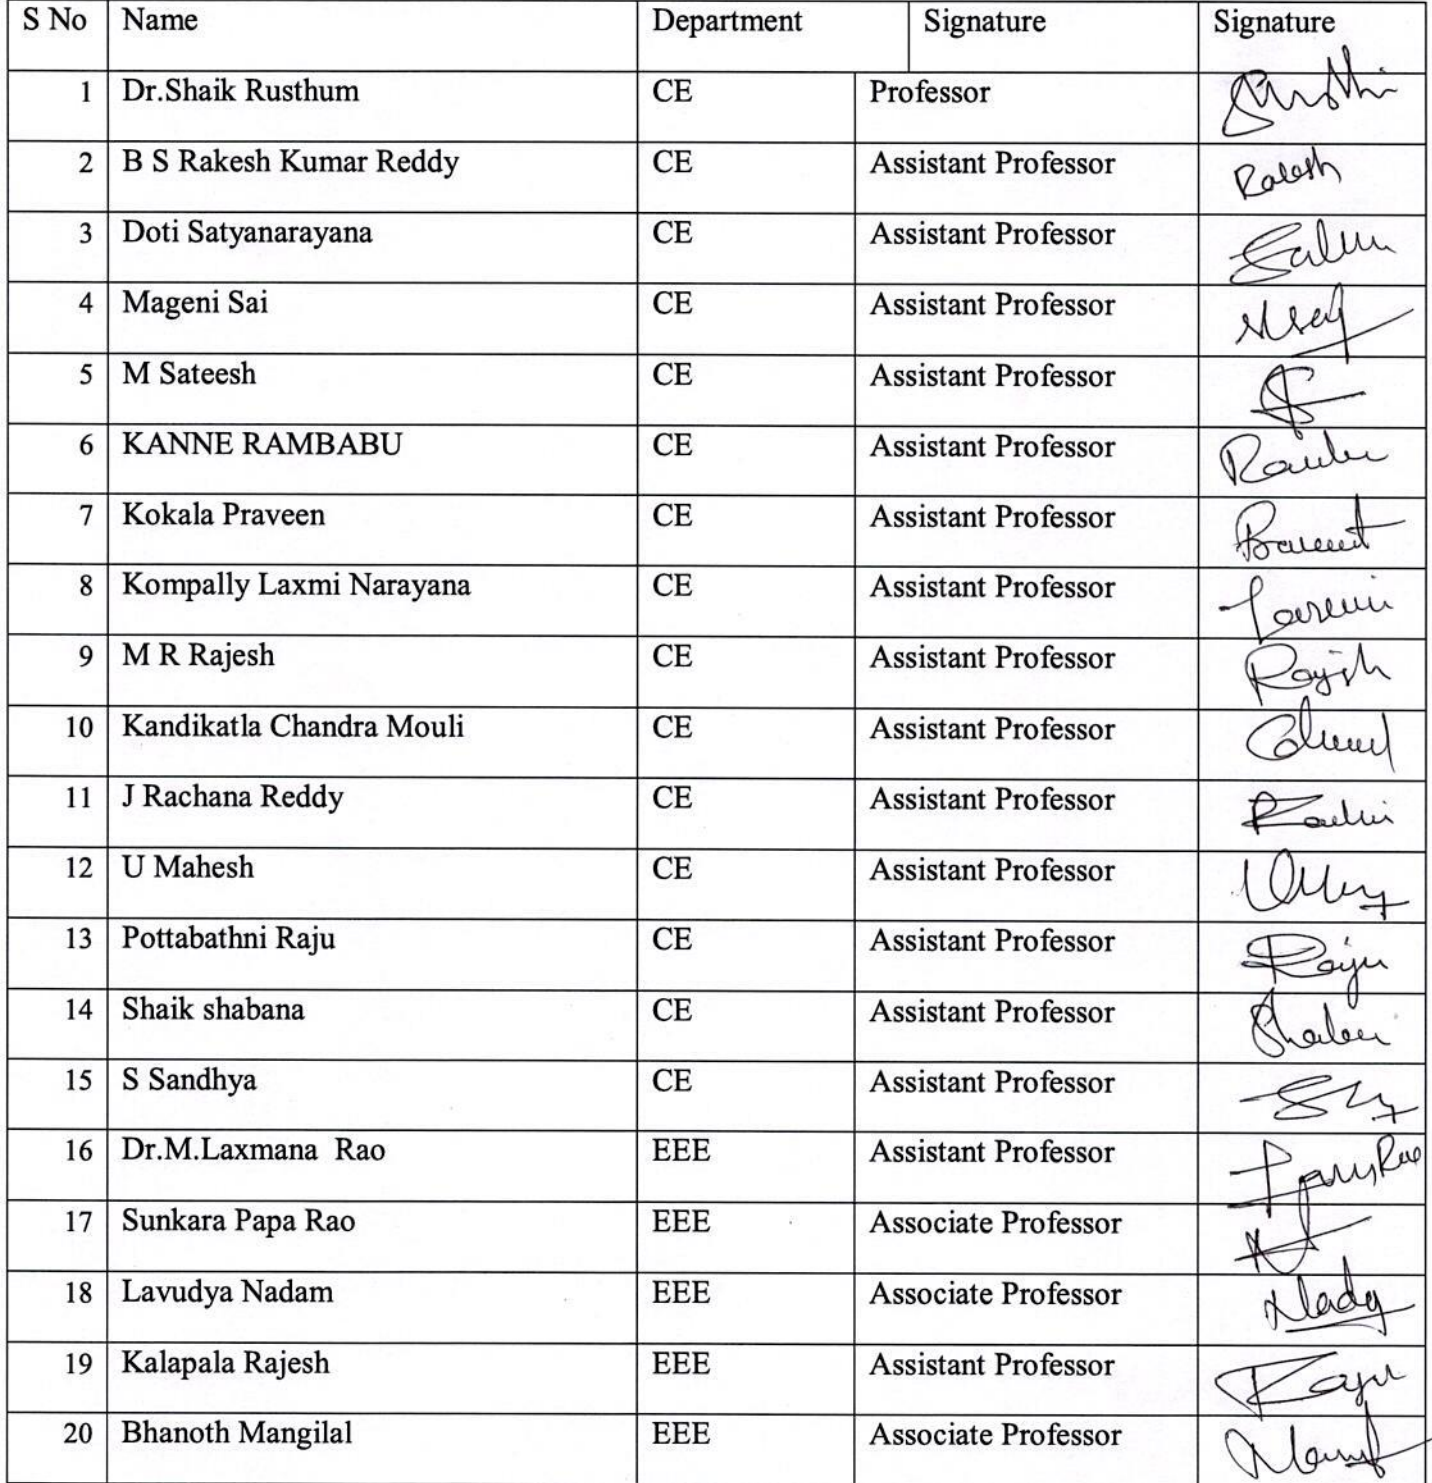 S No Name Department Signature Signature
1 Dr.Shaik Rusthum CE Professor
2 B S Rakesh Kumar Reddy CE Assistant Professor Rakesh
3 Doti Satyanarayana CE Assistant Professor
4 Mageni Sai CE Assistant Professor
5 M Sateesh CE Assistant Professor
6 KANNE RAMBABU CE Assistant Professor
7 Kokala Praveen CE Assistant Professor
8 Kompally Laxmi Narayana CE Assistant Professor
9 M R Rajesh CE Assistant Professor Rajesh
10 Kandikatla Chandra Mouli CE Assistant Professor
11 J Rachana Reddy CE Assistant Professor
12 U Mahesh CE Assistant Professor
13 Pottabathni Raju CE Assistant Professor Raju
14 Shaik shabana CE Assistant Professor
15 S Sandhya CE Assistant Professor
16 Dr.M.Laxmana Rao EEE Assistant Professor
17 Sunkara Papa Rao EEE Associate Professor
18 Lavudya Nadam EEE Associate Professor
19 Kalapala Rajesh EEE Assistant Professor
20 Bhanoth Mangilal EEE Associate Professor